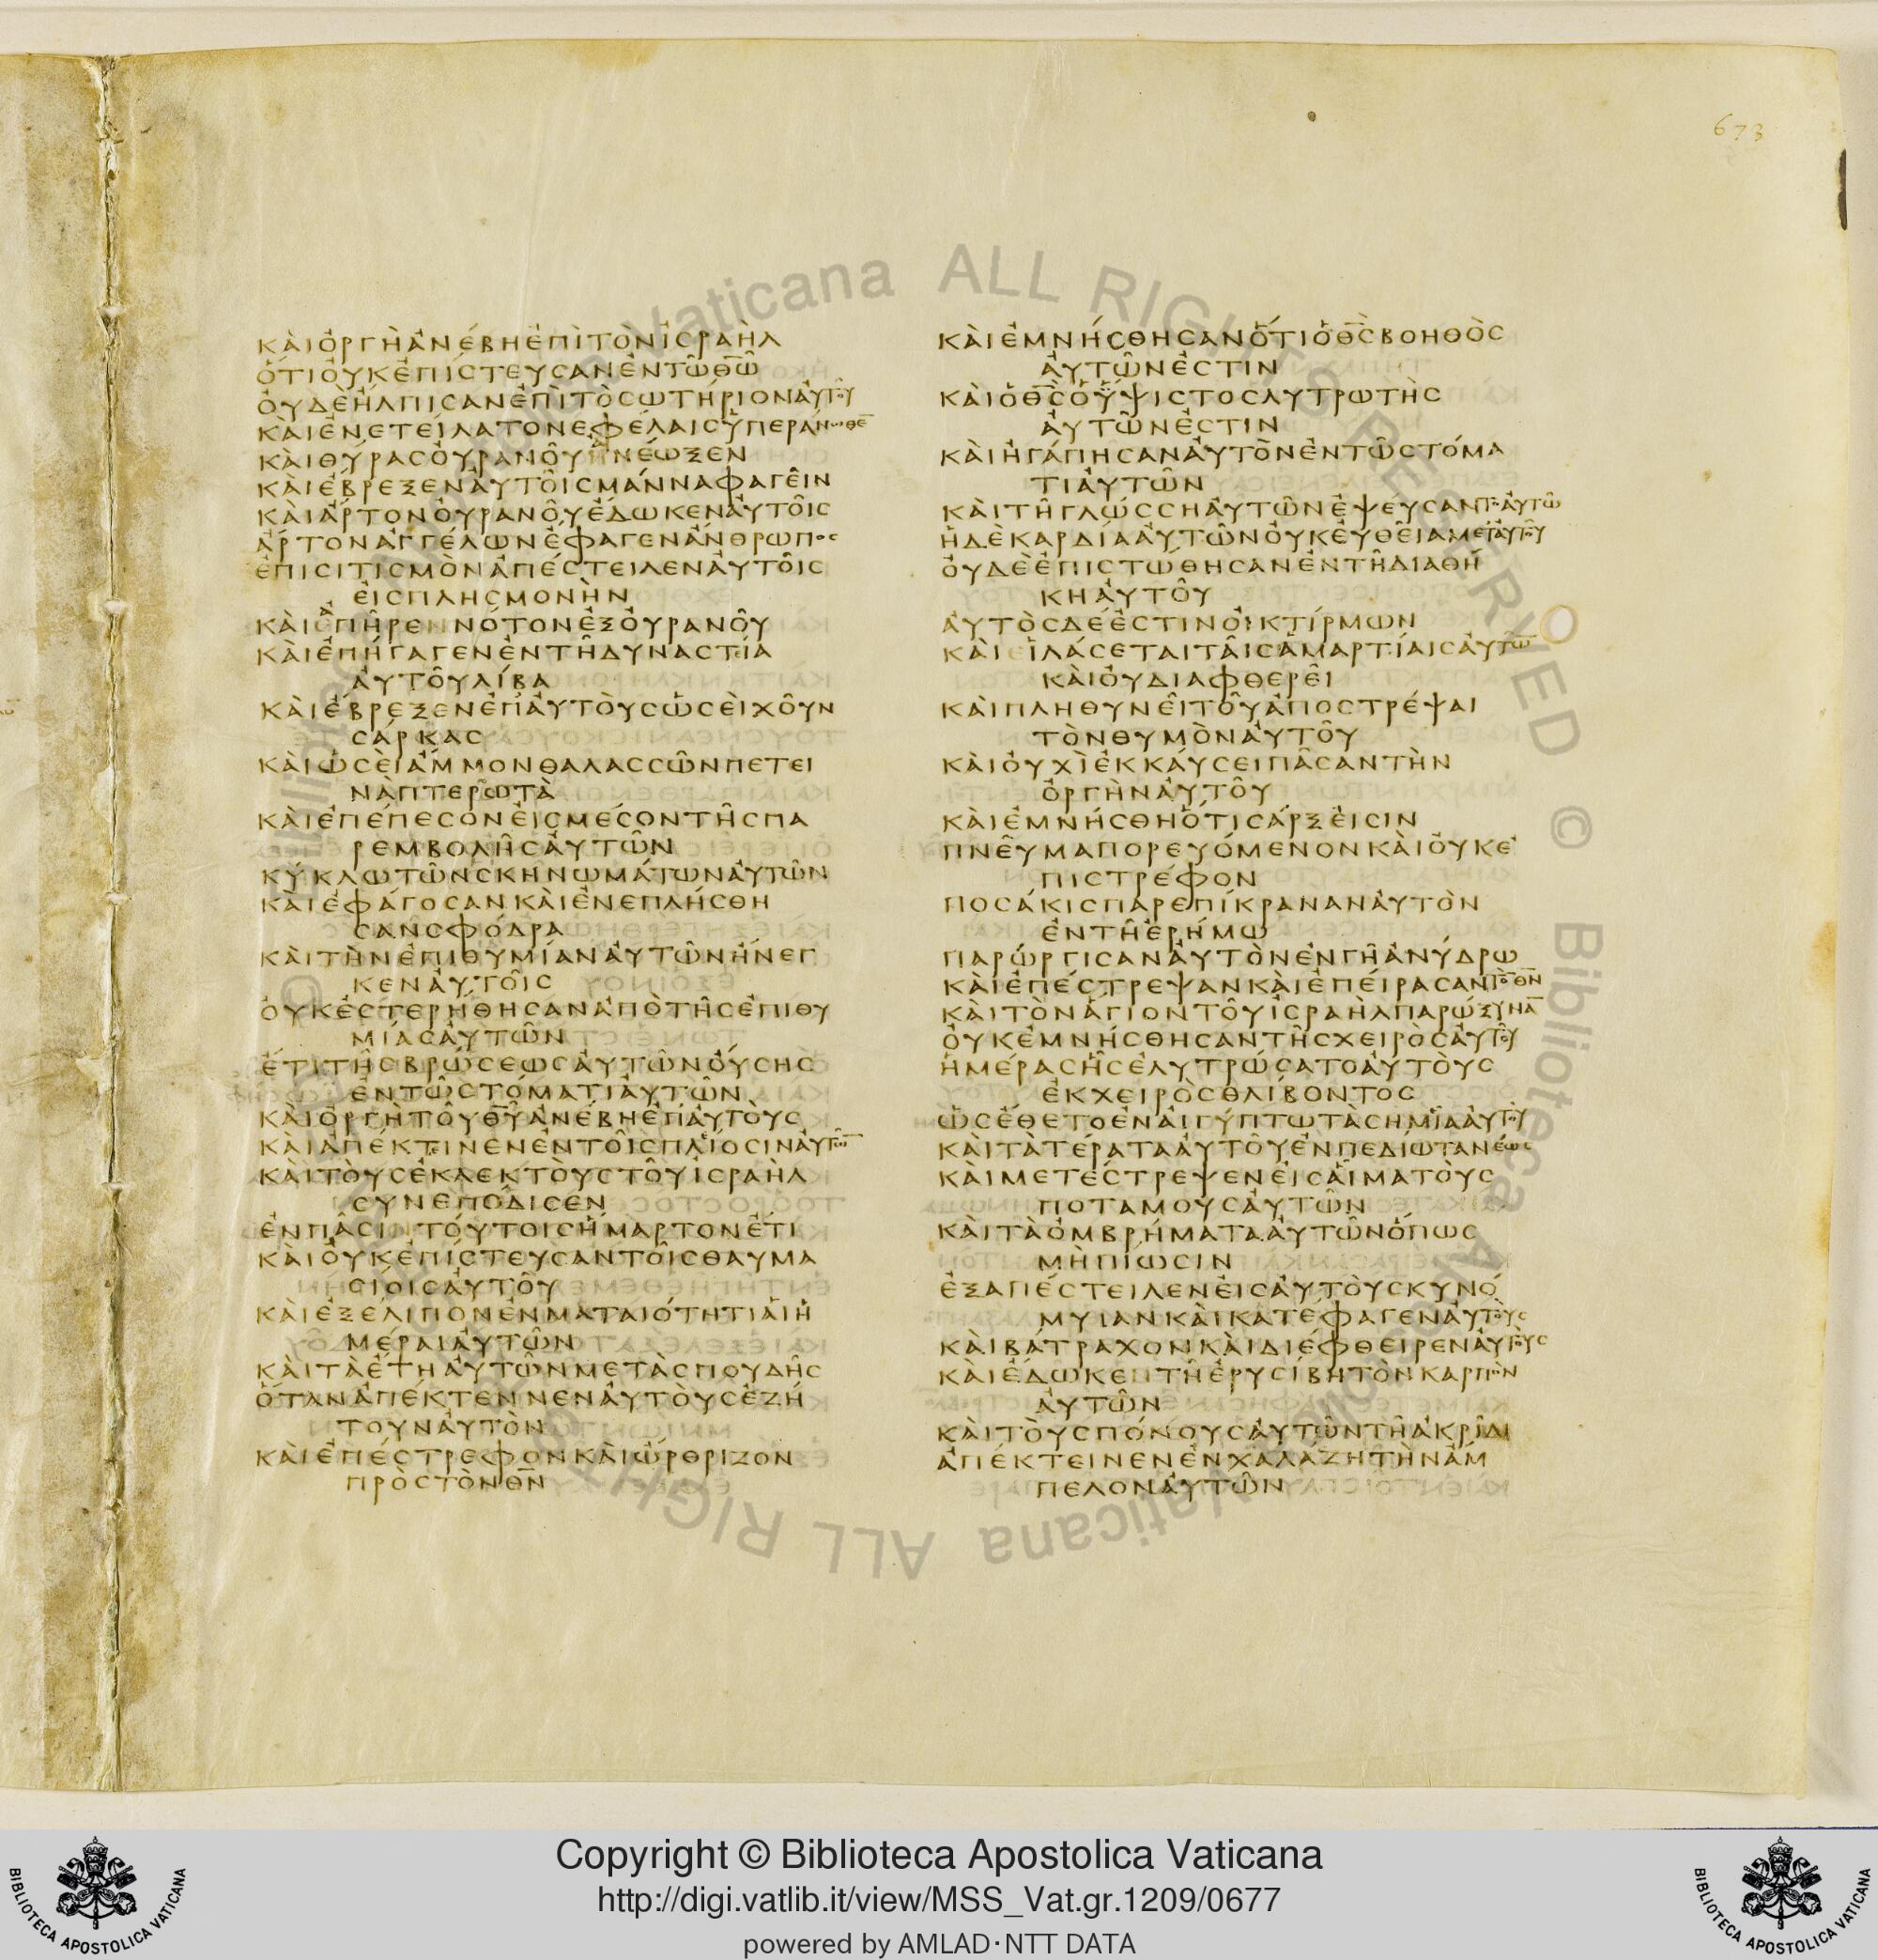 673
ΚΑΙΟΡΓΗΑΝΕΒΗΕΠΙΤΟΝΙΣΡΑΗΛ
ΟΤΙΟΥΚΕΠΙΣΤΕΥΣΑΝΕΝΤΩΘΩ
ΟΥΔΕΗΛΠΙΣΑΝΕΠΙΤΟΣΩΤΗΡΙΟΝΑΥΤΟΥ
ΚΑΙΕΝΕΤΕΙΛΑΤΟΝΕΦΕΛΑΙΣΥΠΕΡΑΝΩΘΕ
ΚΑΙΘΥΡΑΣΟΥΡΑΝΟΥΗΝΕΩΞΕΝ
ΚΑΙΕΒΡΕΞΕΝΑΥΤΟΙΣΜΑΝΝΑΦΑΓΕΙΝ
ΚΑΙΑΡΤΟΝΟΥΡΑΝΟΥΕΔΩΚΕΝΑΥΤΟΙΣ
ΑΡΤΟΝΑΓΓΕΛΩΝΕΦΑΓΕΝΑΝΘΡΩΠΟΣ
ΕΠΙΣΙΤΙΣΜΟΝΑΠΕΣΤΕΙΛΕΝΑΥΤΟΙΣ
ΕΙΣΠΛΗΣΜΟΝΗΝ
ΚΑΙΑΠΗΡΕΝΝΟΤΟΝΕΞΟΥΡΑΝΟΥ
ΚΑΙΕΠΗΓΑΓΕΝΕΝΤΗΔΥΝΑΣΤΙΑ
ΑΥΤΟΥΛΙΒΑ
ΚΑΙΕΒΡΕΞΕΝΕΠΑΥΤΟΥΣΩΣΕΙΧΟΥΝ
ΣΑΡΚΑΣ
ΚΑΙΩΣΕΙΑΜΜΟΝΘΑΛΑΣΣΩΝΠΕΤΕΙ
ΝΑΠΤΕΡΩΤΑ
ΚΑΙΕΠΕΠΕΣΟΝΕΙΣΜΕΣΟΝΤΗΣΠΑ
ΡΕΜΒΟΛΗΣΑΥΤΩΝ
ΚΥΚΛΩΤΩΝΣΚΗΝΩΜΑΤΩΝΑΥΤΩΝ
ΚΑΙΕΦΑΓΟΣΑΝΚΑΙΕΝΕΠΛΗΣΘΗ
ΣΑΝΣΦΟΔΡΑ
ΚΑΙΤΗΝΕΠΙΘΥΜΙΑΝΑΥΤΩΝΗΝΕΓ
ΚΕΝΑΥΤΟΙΣ
ΟΥΚΕΣΤΕΡΗΘΗΣΑΝΑΠΟΤΗΣΕΠΙΘΥ
ΜΙΑΣΑΥΤΩΝ
ΕΤΙΤΗΣΒΡΩΣΕΩΣΑΥΤΩΝΟΥΣΗΣ
ΕΝΤΩΣΤΟΜΑΤΙΑΥΤΩΝ
ΚΑΙΟΡΓΗΤΟΥΘΥΑΝΕΒΗΕΠΑΥΤΟΥΣ
ΚΑΙΑΠΕΚΤΙΝΕΝΕΝΤΟΙΣΠΛΙΟΣΙΝΑΥΤΩ
ΚΑΙΤΟΥΣΕΚΛΕΚΤΟΥΣΤΟΥΙΣΡΑΗΛ
ΣΥΝΕΠΟΔΙΣΕΝ
ΕΝΠΑΣΙΝΤΟΥΤΟΙΣΗΜΑΡΤΟΝΕΤΙ
ΚΑΙΟΥΚΕΠΙΣΤΕΥΣΑΝΤΟΙΣΘΑΥΜΑ
ΣΙΟΙΣΑΥΤΟΥ
ΚΑΙΕΞΕΛΙΠΟΝΕΝΜΑΤΑΙΟΤΗΤΙΑΙΗ
ΜΕΡΑΙΑΥΤΩΝ
ΚΑΙΤΑΕΤΗΑΥΤΩΝΜΕΤΑΣΠΟΥΔΗΣ
ΟΤΑΝΑΠΕΚΤΕΝΝΕΝΑΥΤΟΥΣΕΖΗ
ΤΟΥΝΑΥΤΟΝ
ΚΑΙΕΠΕΣΤΡΕΦΟΝΚΑΙΩΡΘΡΙΖΟΝ
ΠΡΟΣΤΟΝΘΝ
ΚΑΙΕΜΝΗΣΘΗΣΑΝΟΤΙΟΘΣΒΟΗΘΟΣ
ΑΥΤΩΝΕΣΤΙΝ
ΚΑΙΟΘΣΟΥΨΙΣΤΟΣΛΥΤΡΩΤΗΣ
ΑΥΤΩΝΕΣΤΙΝ
ΚΑΙΗΓΑΠΗΣΑΝΑΥΤΟΝΕΝΤΩΣΤΟΜΑ
ΤΙΑΥΤΩΝ
ΚΑΙΤΗΓΛΩΣΣΗΑΥΤΩΝΕΨΕΥΣΑΝΤΟΑΥΤΩ
ΗΔΕΚΑΡΔΙΑΑΥΤΩΝΟΥΚΕΥΘΕΙΑΜΕΤΑΥΤΟΥ
ΟΥΔΕΕΠΙΣΤΩΘΗΣΑΝΕΝΤΗΔΙΑΘΗ
ΚΗΑΥΤΟΥ
ΑΥΤΟΣΔΕΕΣΤΙΝΟΙΚΤΙΡΜΩΝ
ΚΑΙΕΙΛΑΣΕΤΑΙΤΑΙΣΑΜΑΡΤΙΑΙΣΑΥΤΩ
ΚΑΙΟΥΔΙΑΦΘΕΡΕΙ
ΚΑΙΠΛΗΘΥΝΕΙΤΟΥΑΠΟΣΤΡΕΨΑΙ
ΤΟΝΘΥΜΟΝΑΥΤΟΥ
ΚΑΙΟΥΧΙΕΚΚΑΥΣΕΙΠΑΣΑΝΤΗΝ
ΟΡΓΗΝΑΥΤΟΥ
ΚΑΙΕΜΝΗΣΘΗΟΤΙΣΑΡΞΕΙΣΙΝ
ΠΝΕΥΜΑΠΟΡΕΥΟΜΕΝΟΝΚΑΙΟΥΚΕ
ΠΙΣΤΡΕΦΟΝ
ΠΟΣΑΚΙΣΠΑΡΕΠΙΚΡΑΝΑΝΑΥΤΟΝ
ΕΝΤΗΕΡΗΜΩ
ΠΑΡΩΡΓΙΣΑΝΑΥΤΟΝΕΝΓΗΑΝΥΔΡΩ
ΚΑΙΕΠΕΣΤΡΕΨΑΝΚΑΙΕΠΕΙΡΑΣΑΝΤΟΝΘΝ
ΚΑΙΤΟΝΑΓΙΟΝΤΟΥΙΣΡΑΗΛΠΑΡΩΞΥΝΑ
ΟΥΚΕΜΝΗΣΘΗΣΑΝΤΗΣΧΕΙΡΟΣΑΥΤΟΥ
ΗΜΕΡΑΣΗΣΕΛΥΤΡΩΣΑΤΟΑΥΤΟΥΣ
ΕΚΧΕΙΡΟΣΘΛΙΒΟΝΤΟΣ
ΩΣΕΘΕΤΟΕΝΑΙΓΥΠΤΩΤΑΣΗΜΙΑΑΥΤΟΥ
ΚΑΙΤΑΤΕΡΑΤΑΑΥΤΟΥΕΝΠΕΔΙΩΤΑΝΕΩΣ
ΚΑΙΜΕΤΕΣΤΡΕΨΕΝΕΙΣΑΙΜΑΤΟΥΣ
ΠΟΤΑΜΟΥΣΑΥΤΩΝ
ΚΑΙΤΑΟΜΒΡΗΜΑΤΑΑΥΤΩΝΟΠΩΣ
ΜΗΠΙΩΣΙΝ
ΕΞΑΠΕΣΤΕΙΛΕΝΕΙΣΑΥΤΟΥΣΚΥΝΟ
ΜΥΙΑΝΚΑΙΚΑΤΕΦΑΓΕΝΑΥΤΟΥΣ
ΚΑΙΒΑΤΡΑΧΟΝΚΑΙΔΙΕΦΘΕΙΡΕΝΑΥΤΟΥΣ
ΚΑΙΕΔΩΚΕΝΤΗΕΡΥΣΙΒΗΤΟΝΚΑΡΠΟΝ
ΑΥΤΩΝ
ΚΑΙΤΟΥΣΠΟΝΟΥΣΑΥΤΩΝΤΗΑΚΡΙΔΙ
ΑΠΕΚΤΕΙΝΕΝΕΝΧΑΛΑΖΗΤΗΝΑΜ
ΠΕΛΟΝΑΥΤΩΝ
Copyright © Biblioteca Apostolica Vaticana
http://digi.vatlib.it/view/MSS_Vat.gr.1209/0677
powered by AMLAD·NTT DATA
BIBLIOTECA APOSTOLICA VATICANA
BIBLIOTECA APOSTOLICA VATICANA